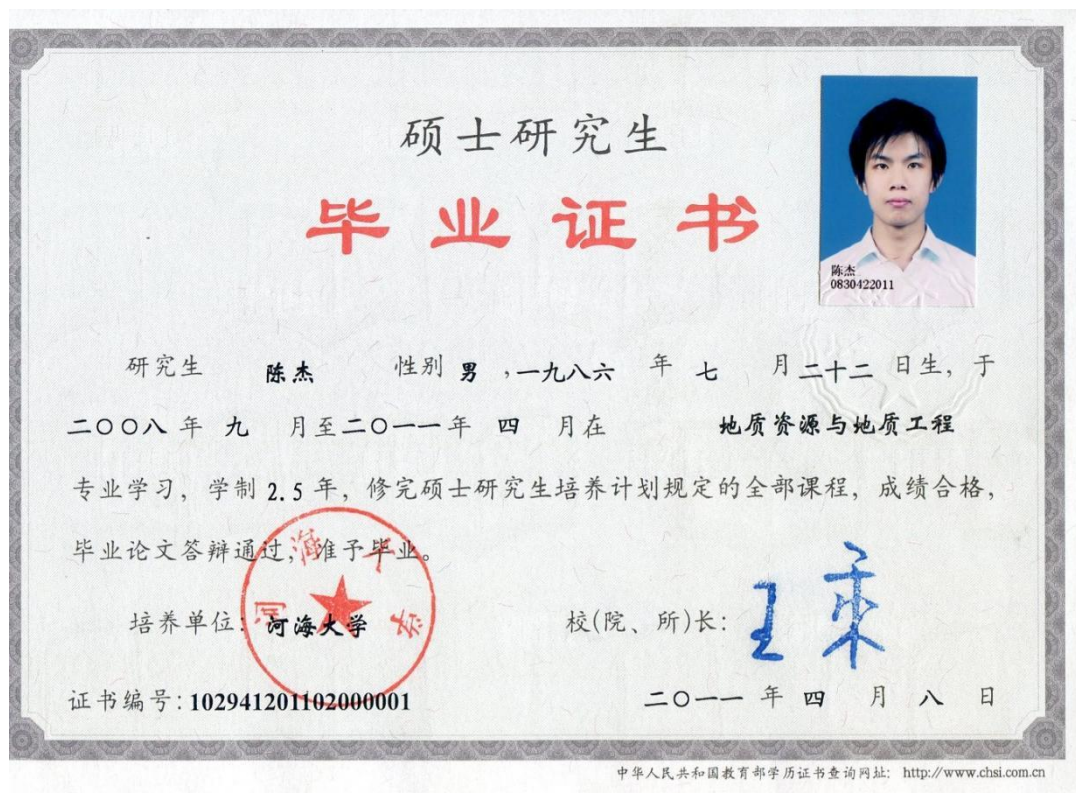 硕士研究生
毕业证书
陈杰
0830422011
研究生 陈杰 性别 男 ,一九八六 年 七 月 二十二 日生, 于
二〇〇八 年 九 月至 二〇一一 年 四 月在 地质资源与地质工程
专业学习, 学制 2.5 年, 修完硕士研究生培养计划规定的全部课程, 成绩合格,
毕业论文答辩通过, 准予毕业。
河海大学
培养单位: 河海大学 校(院、所)长:
证书编号: 102941201102000001 二〇一一 年 四 月 八 日
中华人民共和国教育部学历证书查询网址: http://www.chsi.com.cn